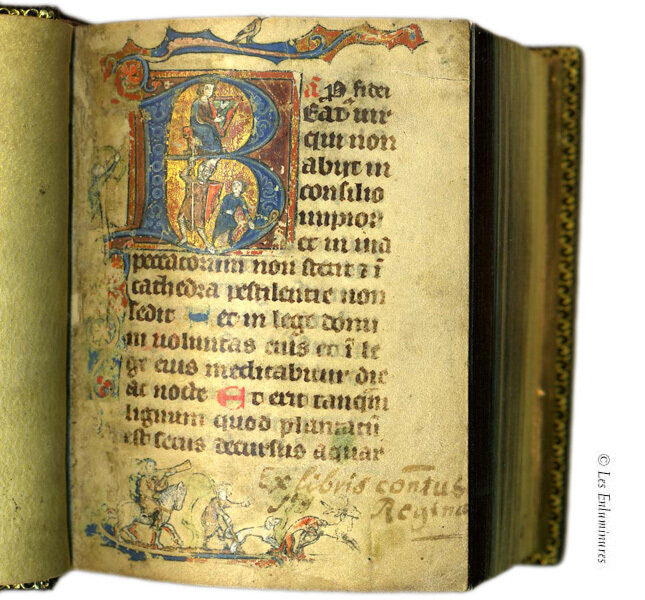 B
Ps fidei
Eat' uir
qui non
abijt in
consilio
impior
et in uia
peccatorum non stetit z ī
cathedra pestilentie non
sedit et in lege domi
ni uoluntas eius et ī le
ge eius meditabitur die
ac nocte Et erit tanq̄m
lignum quod plantatū
est secus decursus aquar
Ex libris con̄tus
Regina
© Les Enluminures